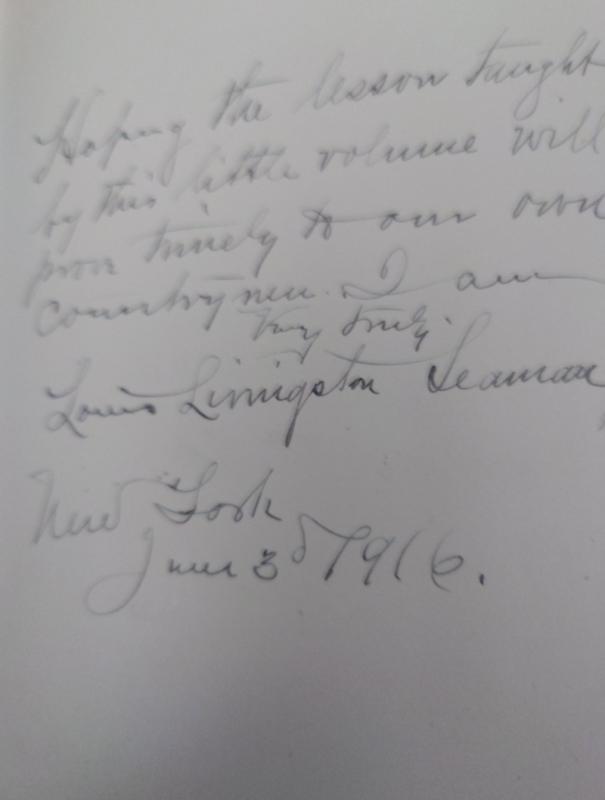 Hoping the lesson taught
by this little volume will
prov timely to our own
countrymen. I am
Very truly.
Louis Livingston Seaman
New York
June 3d 1916.